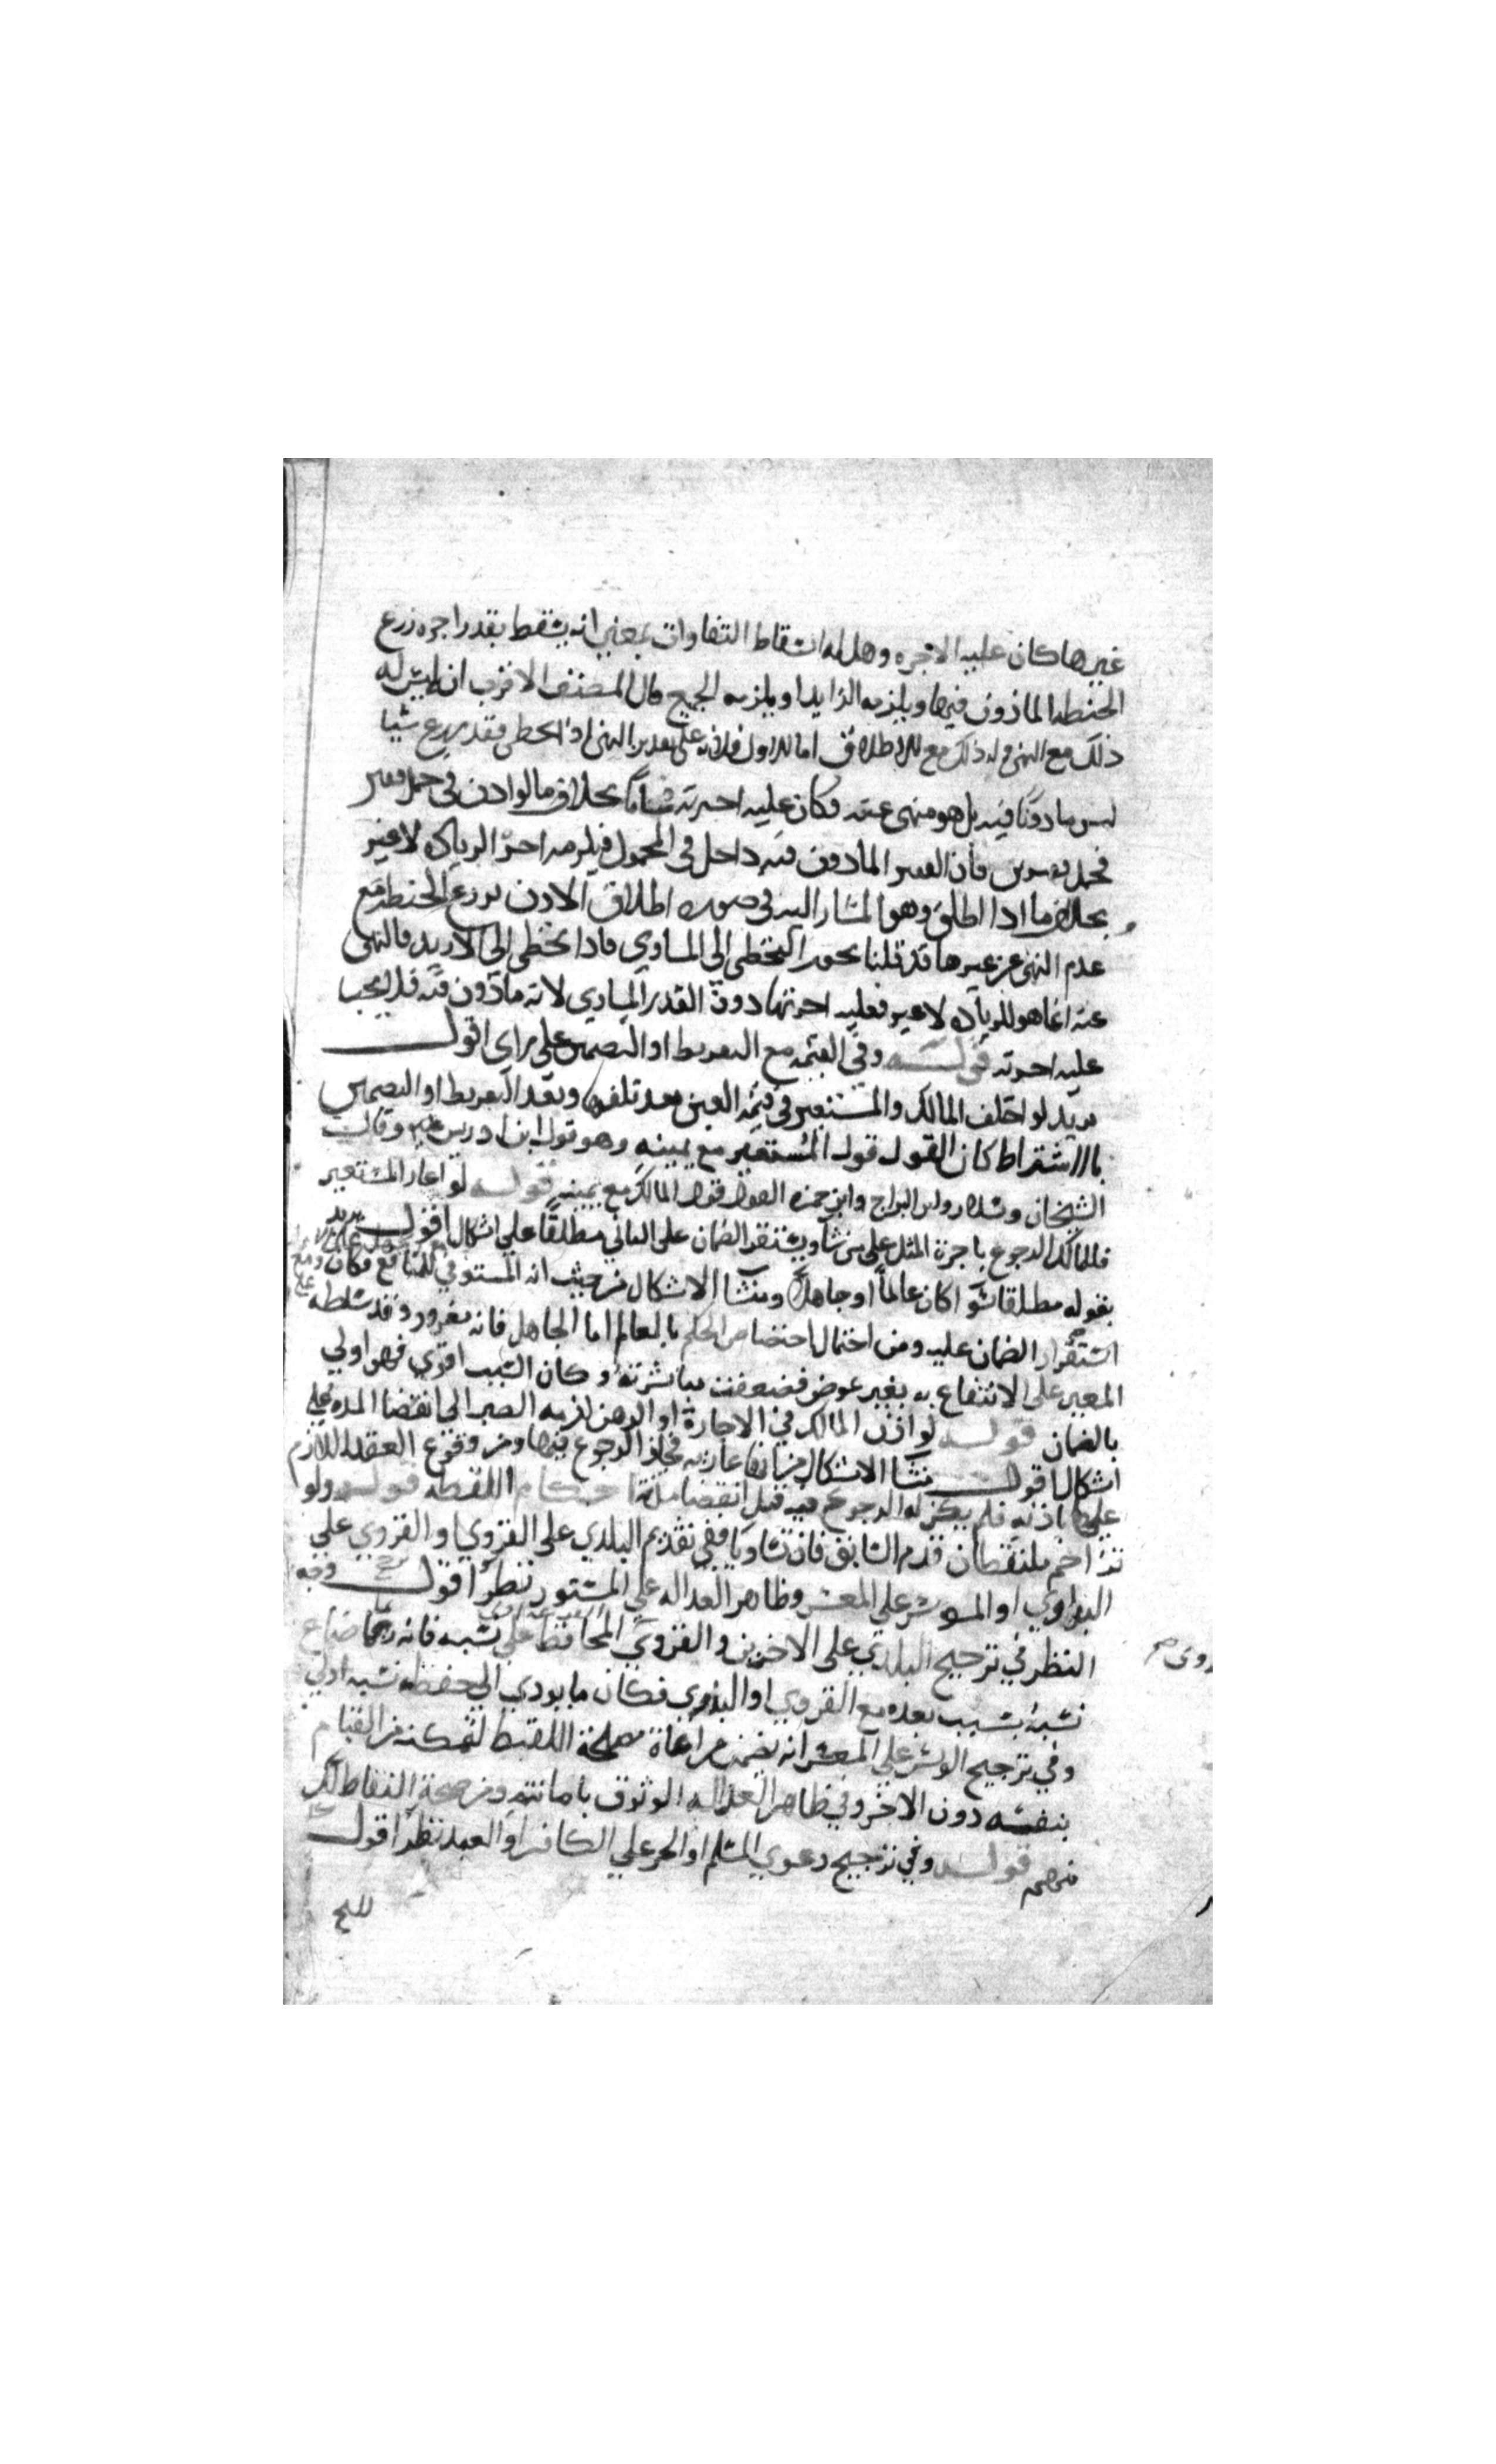 غيرها كان عليه الاجره وهل له اسقاط التفاوت بمعني انه يسقط بقدر اجره زرع
الحنطه الماذون فيها ويلزمه الزايد او يلزمه الجميع قال المصنف الاقرب انه ليس له
ذلك مع النهي وله ذلك مع الاطلاق اما الاول فلانه على تقدير النهي اذا تخطى فقد زرع شيا
ليس ماذونا فيه بل هو منهي عنه فكان عليه اجرته تماما بخلاف ما لو اذن في حمل قفيز
فحمل قفيزين فان القفيز الماذون فيه داخل في المحمول فيلزمه اجر الزياده لا غير
بخلاف ما اذا اطلق وهو المشار اليه في صوره اطلاق الاذن بزرع الحنطه مع
عدم النهي عن غيرها قد قلنا بجواز التخطي الى المساوي فاذا تخطى الى الازيد فالنهي
عنه انما هو للزياده لا غير فعليه اجرتها دون القدر المساوي لانه ماذون فيه فلا يجب
عليه اجرته قوله وفي القيمه مع التفريط او التضمين على راي اقول
يريد لو اختلف المالك والمستعير في قيمه العين بعد تلفها وبعد التفريط او التضمين
بالاشتراط كان القول قول المستعير مع يمينه وهو قول ابن ادريس وقال
الشيخان وسلار وابن البراج وابن حمزه القول قول المالك مع يمينه قوله لو اعار المستعير
فللمالك الرجوع باجرة المثل على من شا ويستقر الضمان على الثاني مطلقا على اشكال اقول يريد
بقوله مطلقا سوا كان عالما او جاهلا ومنشا الاشكال من حيث انه المستوفي للمنافع فكان
استقرار الضمان عليه ومن احتمال اختصاص الحكم بالعالم اما الجاهل فانه مغرور وقد سلطه
المعير على الانتفاع به بغير عوض فضعفت مباشرته وكان السبب اقوي فهو اولي
بالضمان قوله لو اذن المالك في الاجارة او الرهن لزمه الصبر الى انقضا المده على
اشكال اقول منشا الاشكال من انها عاريه فجاز الرجوع فيها ومن وقوع العقد اللازم
عليها باذنه فلم يكن له الرجوع فيه قبل انقضا مدته احكام اللقطه قوله ولو
تزاحم ملتقطان قدم السابق فان تساويا ففي تقديم البلدي على القروي او القروي على
البدوي او الموسر على المعسر وظاهر العداله على المستور نظر اقول وجه
النظر في ترجيح البلدي على الاخرين والقروي المحافظه على نسبه فانه ربما ضاع
نسبه بسبب بعده مع القروي او البدوي فكان ما يودي الى حفظ نسبه اولي
وفي ترجيح الموسر على المعسر انه تضمن مراعاة مصلحة اللقيط لتمكنه من القيام
بنفسه دون الاخر وفي ظاهر العداله الوثوق بامانته ومن صحة التقاط كل
منهما قوله وفي ترجيح دعوي المسلم او الحر على الكافر او العبد نظر اقول